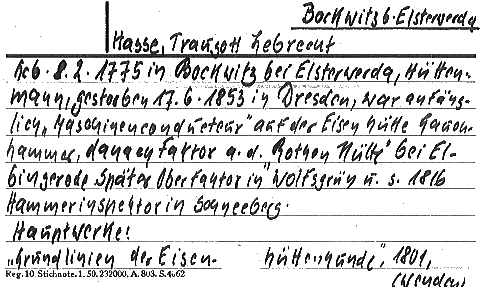 Bockwitz b. Elsterwerda
Hasse, Traugott Lebrecht
Geb. 8.2.1775 in Bockwitz bei Elsterwerda, Hütten-
mann, gestorben 17.6.1853 in Dresden, war anfäng-
lich „Maschinenconducteur" auf der Eisenhütte
hammer, danach Faktor a. d. Rothen Hütte" bei El-
bingerode später Oberfaktor in Wolfsgrün u. s. 1816
Hammerinspektor in Schneeberg.
Hauptwerke:
„Grundlinien der Eisen- hüttenkunde", 1801,
Reg. 10. Stichnote. 1. 50. 232000, A. 803. S. 4062